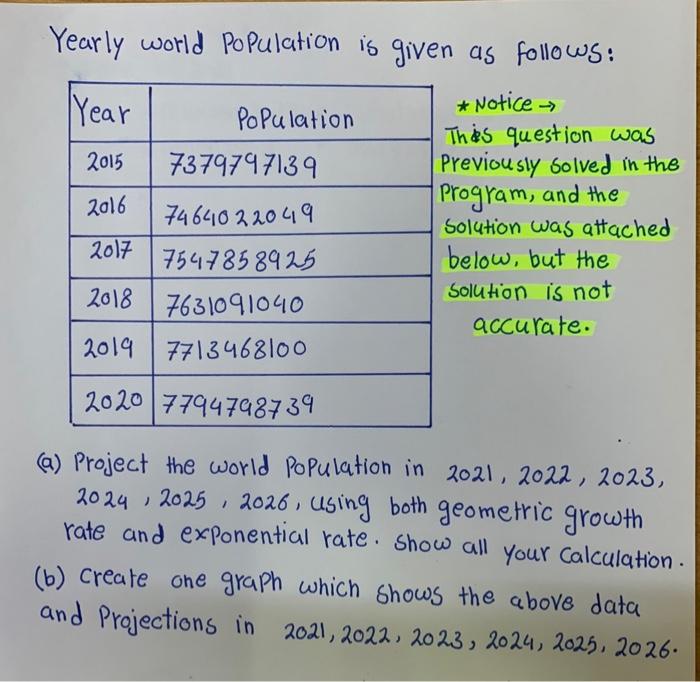 Yearly world Population is given as follows:
Year Population
2015 7379797139
2016 7464022049
2017 7547858925
2018 7631091040
2019 7713468100
2020 7794798739
* Notice →
This question was
Previously solved in the
Program, and the
solution was attached
below, but the
solution is not
accurate.
(a) Project the world Population in 2021, 2022, 2023,
2024, 2025, 2026, using both geometric growth
rate and exponential rate. Show all your Calculation.
(b) Create one graph which shows the above data
and Projections in 2021, 2022, 2023, 2024, 2025, 2026.